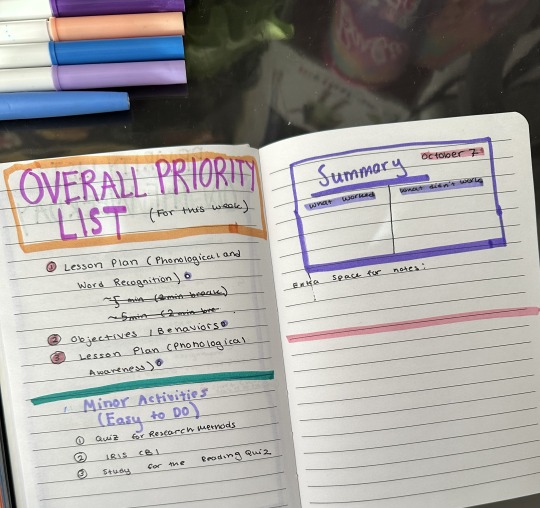 OVERALL PRIORITY
LIST (For this week)
① Lesson Plan (Phonological and
Word Recognition)
~5 min (2min break)
~5min (2 min bre
② Objectives / Behaviors
③ Lesson Plan (Phonological
Awareness)
Minor Activities
(Easy to DO)
① Quiz for Research Methods
② IRIS CB1
③ Study for the Reading Quiz
October 7
Summary
What worked
What didn't work
Extra space for notes: